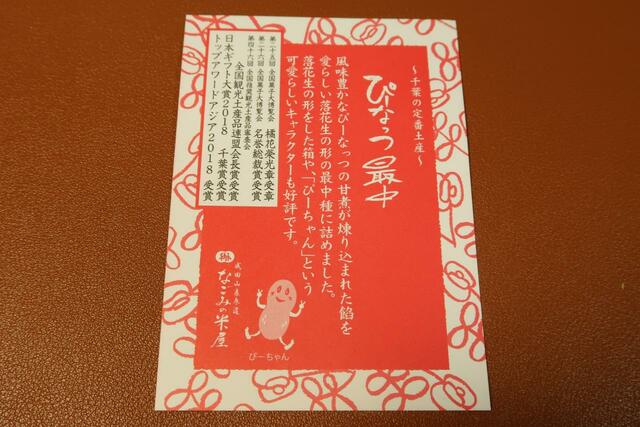 ～千葉の定番土産～
ぴーなっつ最中
風味豊かなぴーなっつの甘煮が煉り込まれた餡を
愛らしい落花生の形の最中種に詰めました。
落花生の形をした箱や、「ぴーちゃん」という
可愛らしいキャラクターも好評です。
第二十五回 全国菓子大博覧会 橘花榮光章受章
第二十六回 全国菓子大博覧会 名誉総裁賞受賞
第四十六回 全国推奨観光土産品審査会
全国観光土産品連盟会長賞受賞
日本ギフト大賞2018 千葉賞受賞
トップアワードアジア2018 受賞
成田山表参道
なごみの米屋
ぴーちゃん